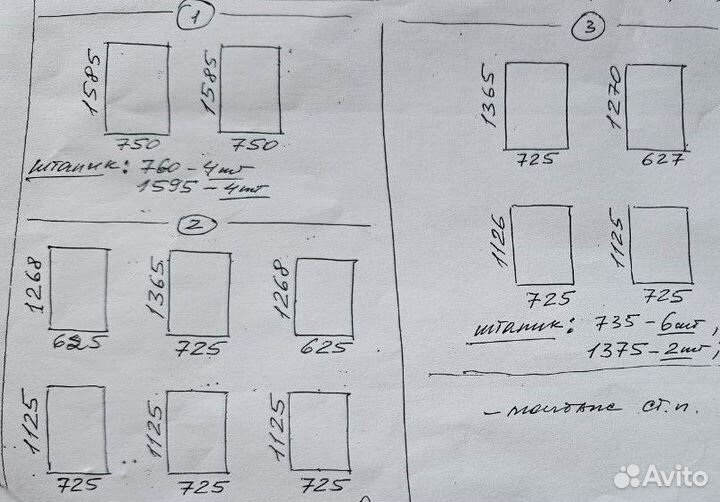 1
1585
1585
750
750
штапик: 760 - 4 шт
1595 - 4 шт
2
1268
1365
1268
625
725
625
1125
1125
1125
725
725
725
3
1365
1270
725
627
1126
1125
725
725
штапик: 735 - 6 шт,
1375 - 2 шт;
- ст. п.
Avito